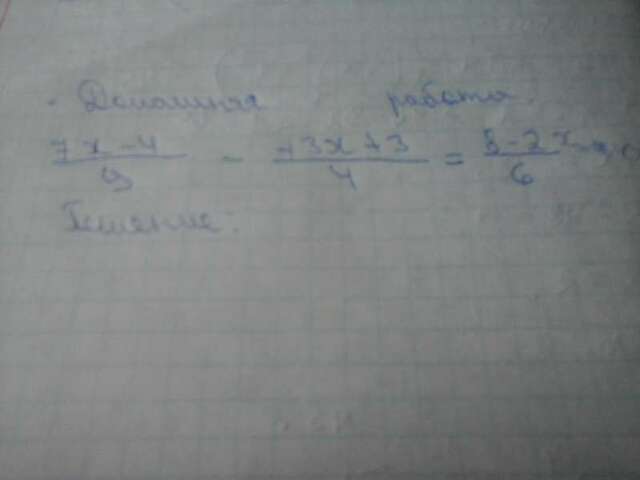 Домашняя работа.
7x-4/9 - -3x+3/4 = 5-2x/6
Решение: